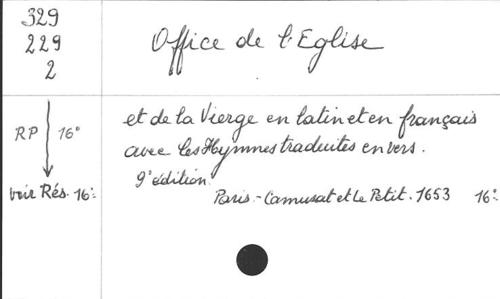 329
229
2
Office de l'Eglise
RP 16°
voir Rés. 16°
et de la Vierge en latin et en français
avec les Hymnes traduites en vers.
9° édition.
Paris. - Camusat et Le Petit. 1653 16°